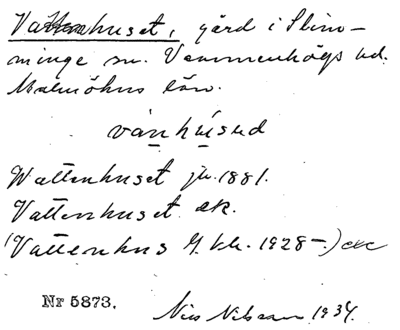 Vattenhuset, gård i Slim-
minge sn. Vemmenhögs hd.
Malmöhus län.
vánhúsud
Wattenhuset jb. 1881.
Vattenhuset ek.
(Vattenhus G. bl. 1928-)
Nr 5873.
Nils Nilsson 1934.